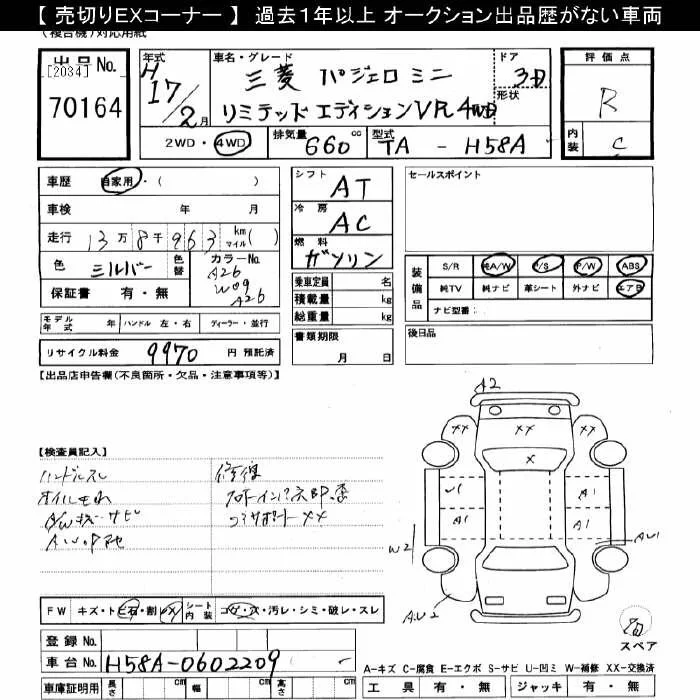 【 売切りEXコーナー 】 過去１年以上 オークション出品歴がない車両
(複合機)対応用紙
出品 No.
[2034]
70164
年式
H17/2月
車名・グレード
三菱 パジェロ ミニ
リミテッド エディションVR 4WD
ドア
3D
形状
評価点
R
内装
C
2WD・4WD
排気量
660cc
型式
TA - H58A
車歴 自家用・( )
車検 年 月
走行 13万8千963 km マイル( )
色 シルバー 色替
カラーNo.
A26
W09
A26
保証書 有・無
シフト
AT
冷房
AC
燃料
ガソリン
乗車定員 名
積載量 kg
総重量 kg
書類期限
月 日
セールスポイント
装備品
S/R 純A/W P/S P/W ABS
純TV 純ナビ 革シート 外ナビ エアB
ナビ型番:
後日品
モデル年式 年 ハンドル 左・右 ディーラー・並行
リサイクル料金 9970 円 預託済
【出品店申告欄(不良箇所・欠品・注意事項等)】
【検査員記入】
ハンドルスレ
オイルもれ
A/Wキズサビ
修復
コアサポートXX
A2
XX XX XX
X
A1
A1 A1
W2
AU1
AU2
スペア
FW キズ・トビ石・割・X
シート内装 コゲ・穴・汚レ・シミ・破レ・スレ
登録 No.
車台 No. H58A-0602209
車庫証明用 長さ cm 幅 cm 高さ cm
A-キズ C-腐食 E-エクボ S-サビ U-凹ミ W-補修 XX-交換済
工具 有・無 ジャッキ 有・無